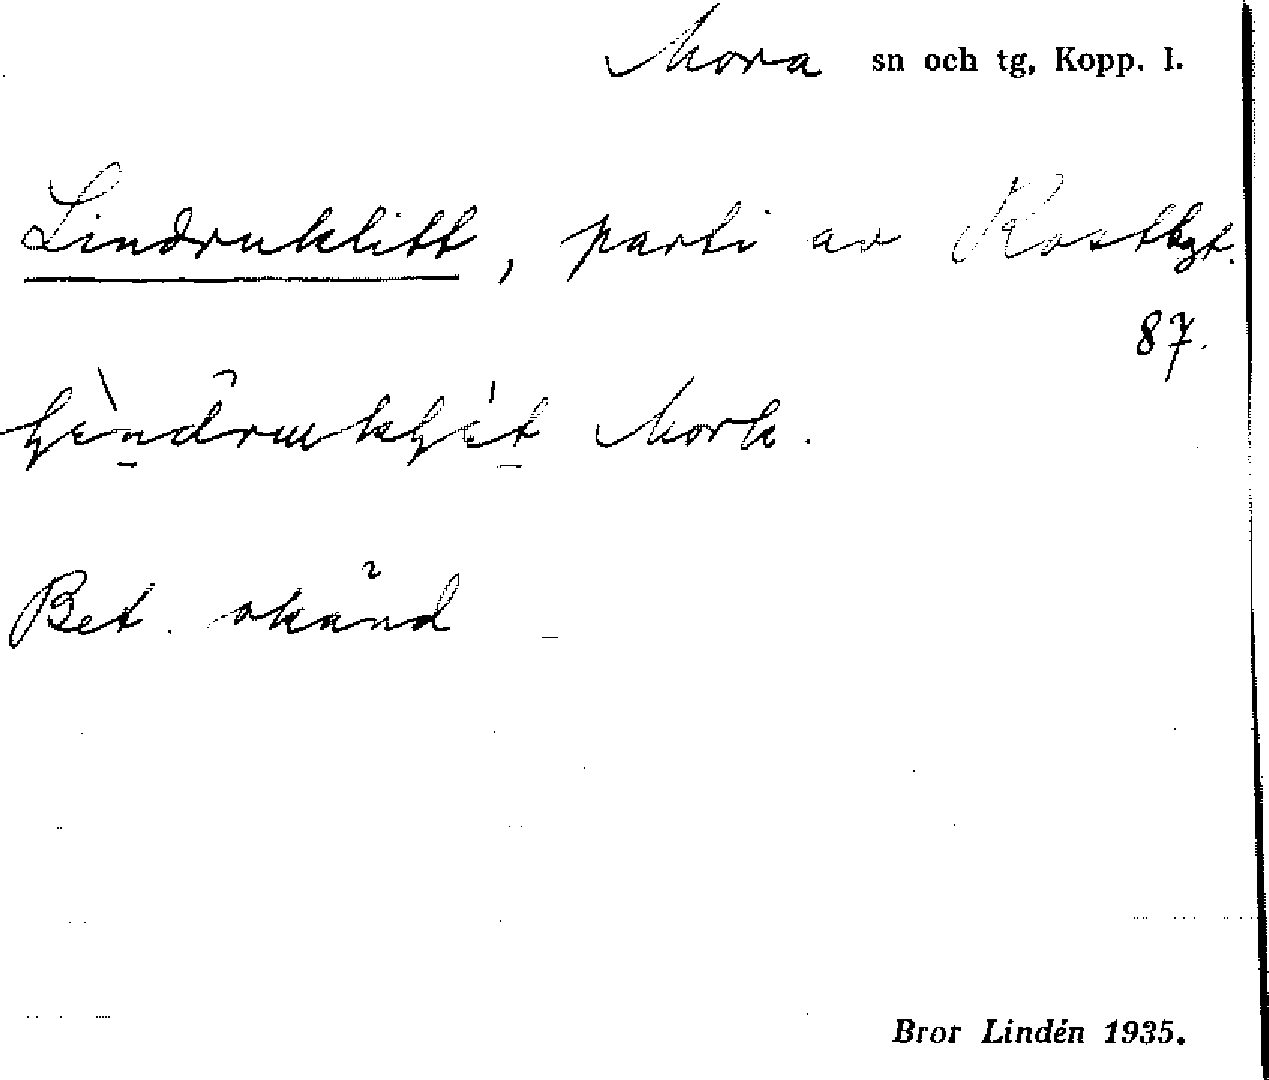 Mora sn och tg, Kopp. l.
Lindruklitt, parti av Rostbgt.
87.
Mork.
Bet. okänd
Bror Lindén 1935.